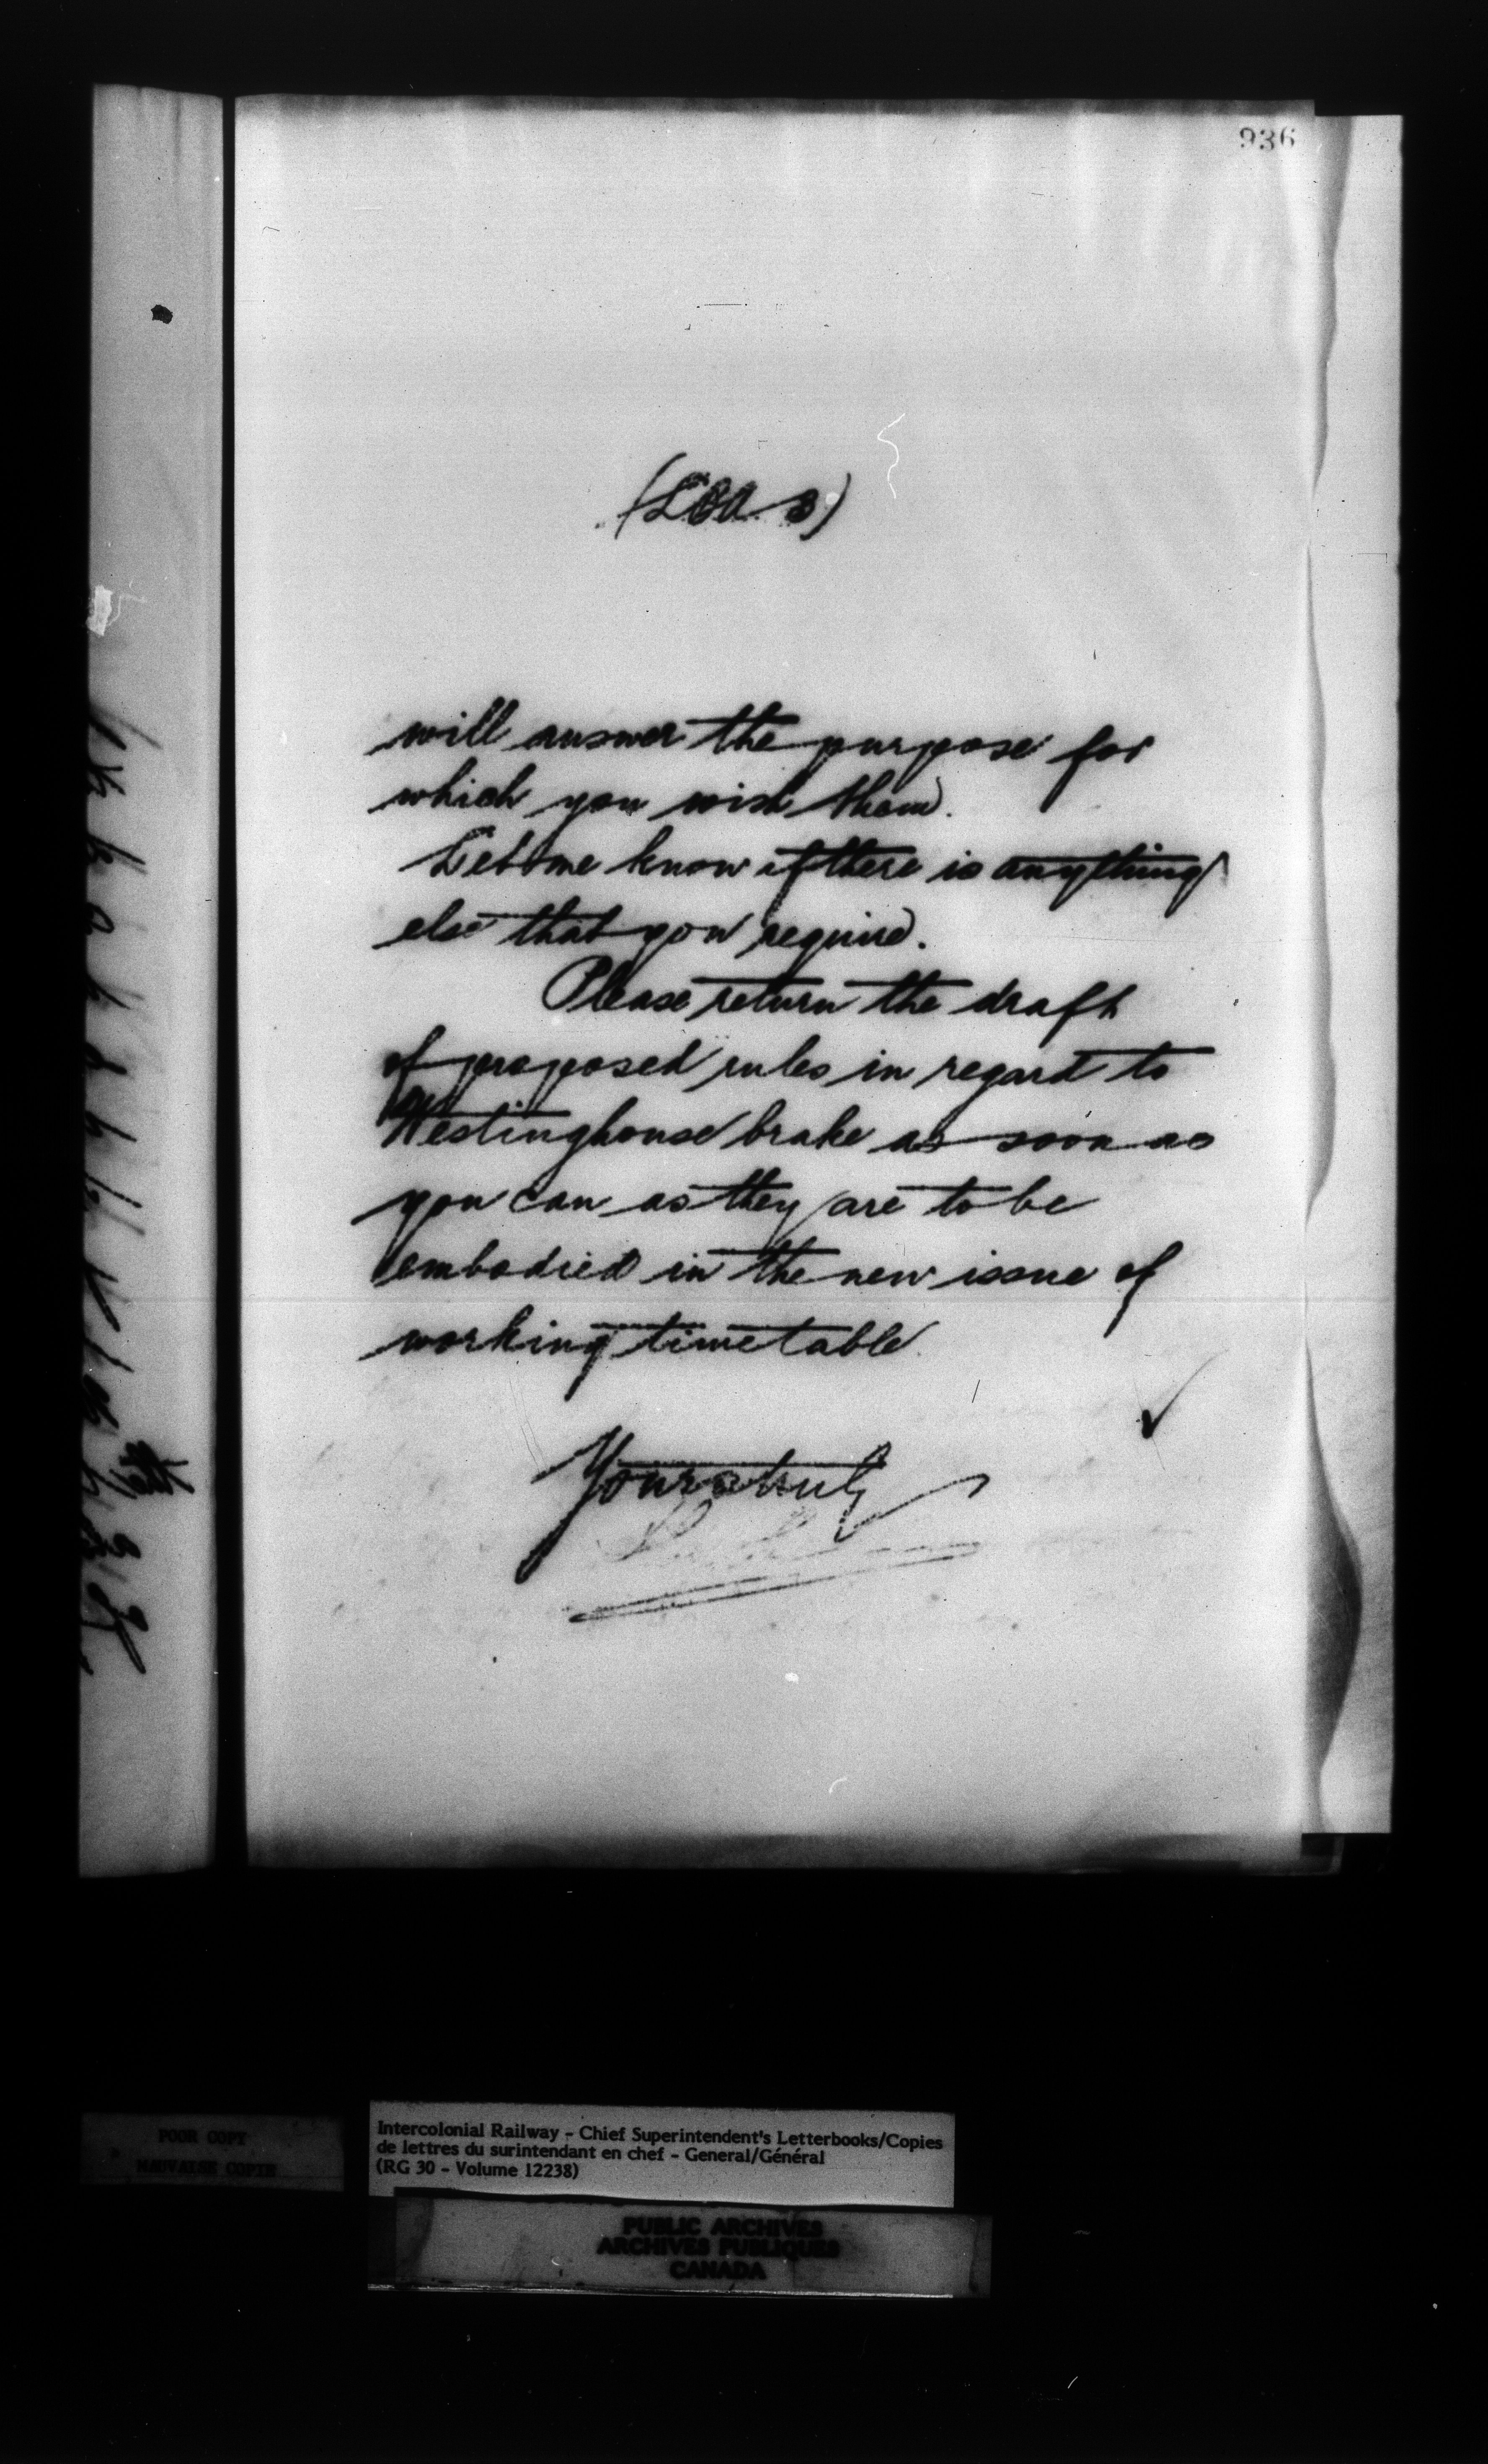 936
will answer the purpose for
which you wish them.
Let me know if there is anything
else that you require.
Please return the draft
of proposed rules in regard to
Westinghouse brake as soon as
you can as they are to be
embodied in the new issue of
working time table
Yours truly
POOR COPY
MAUVAISE COPIE
Intercolonial Railway - Chief Superintendent's Letterbooks/Copies
de lettres du surintendant en chef - General/Général
(RG 30 - Volume 12238)
PUBLIC ARCHIVES
ARCHIVES PUBLIQUES
CANADA